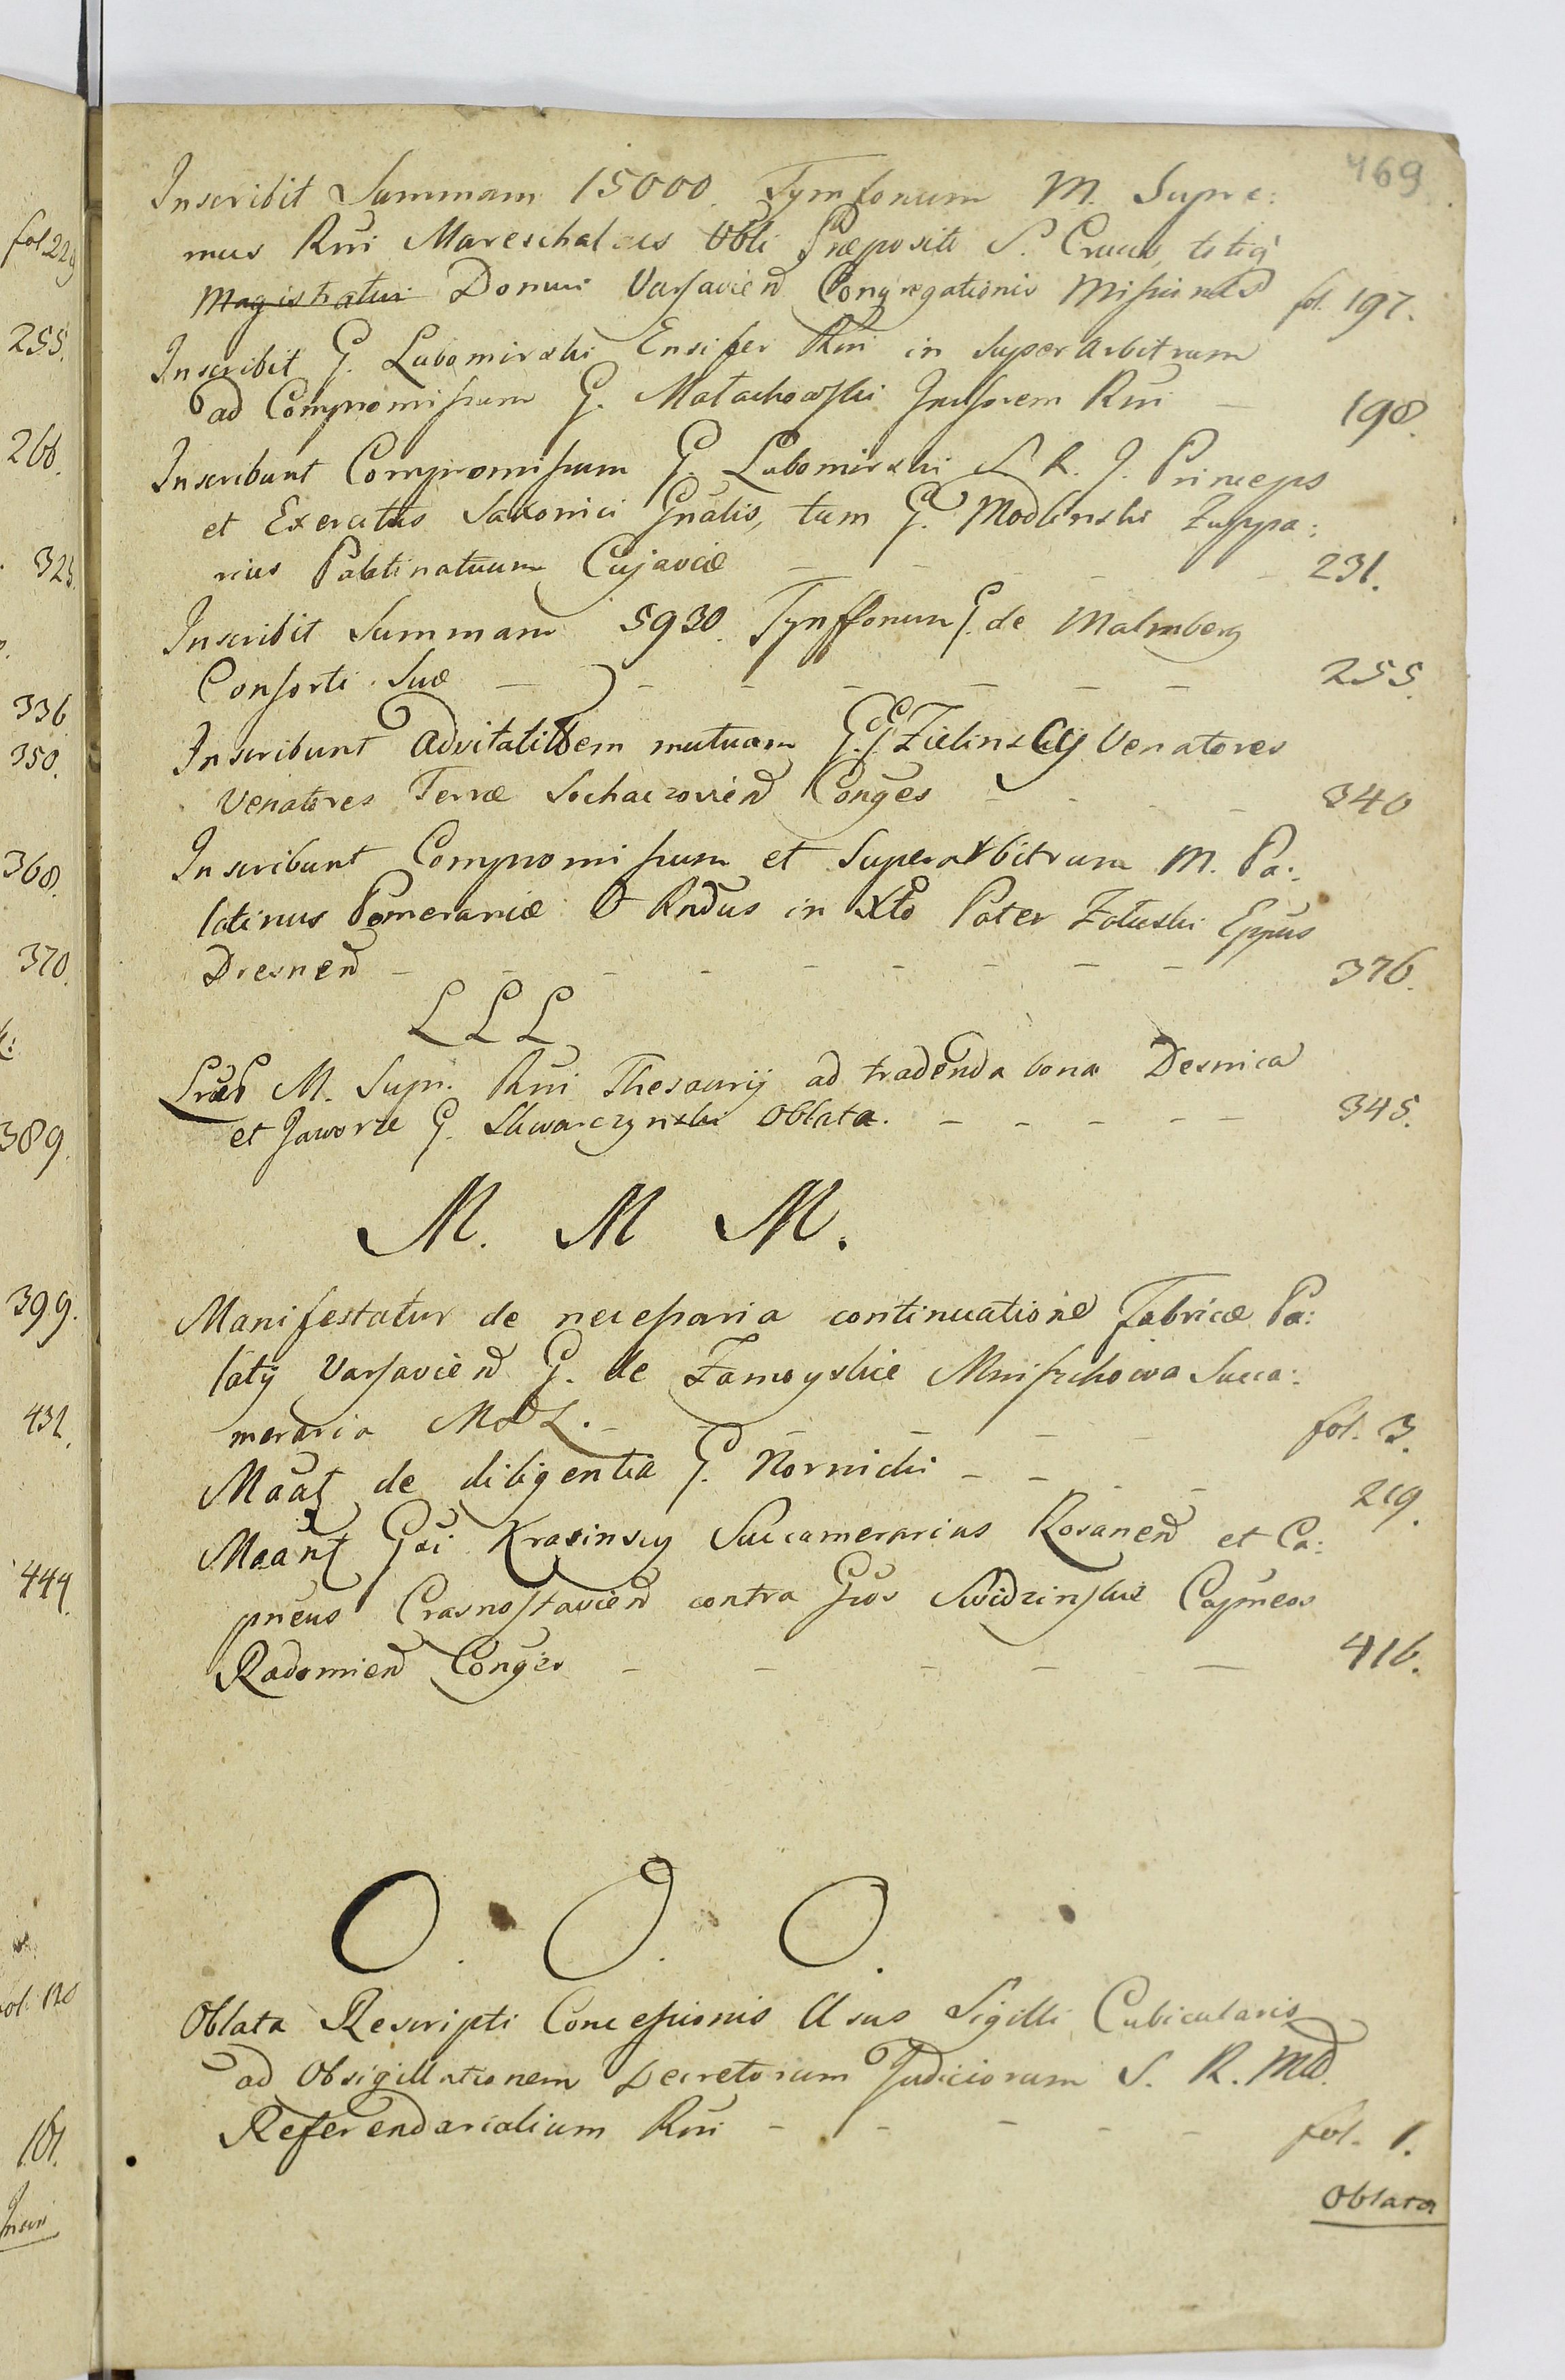 469
Inscribit Summam 15000. Tymfonum M. Supre:
mus Rni Mareschalcus Obli Præposito S. Crucis, totiq
Magistratui Domui Varsavien Congregationis Missionis fol. 197.
Inscribit G. Lubomirski Ensifer Rni in Superarbitrum
ad Compromissum G. Małachowski Incisorem Rni 198.
Inscribunt Compromissum G. Lubomirski S. R. J. Princeps
et Exercitus Saxonici Gnalis, tum G. Modlinski Zuppa:
rius Palatinatuum Cujaviæ 231.
Inscribit Summam 5930. Tynffonum G. de Malmberg
Consorti Suæ 255.
Inscribunt advitalitem mutuam G.G. Zielinscy Venatores
Venatores Terræ Sochaczovien Conges 340
Inscribunt Compromissum et Superarbitrum M. Pa:
latinus Pomeraniæ & Rndus in Xto Pater Załuski Eppus
Dresnen 376.
L L L
Lræ M. Supr. Rni Thesaurij ad tradenda bona Desnica
et Jaworze G. Skwarczynski Oblata. 345.
M. M M.
Manifestatur de necessaria continuatione Fabricæ Pa:
latij Varsavien G. de Zamoyskie Mniszchowa Succa:
meraria MDL. fol. 3.
Maat de diligentia G. Nornicki 219.
Maant Gsi Krasinscy Succamerarius Rosanen et Ca:
pneus Crasnostavien contra Gsos Swidzinskie Capneos
Radomien Conges 416.
O. O. O.
Oblata Rescripti Concessionis Usus Sigilli Cubicularis
ad Obsigillationem Decretorum Judiciorum S. R. Mtis.
Referendarialium Rni fol. 1.
Oblata
fol 229
255.
266.
325.
336
350.
368.
370.
389.
399.
431.
444.
161.